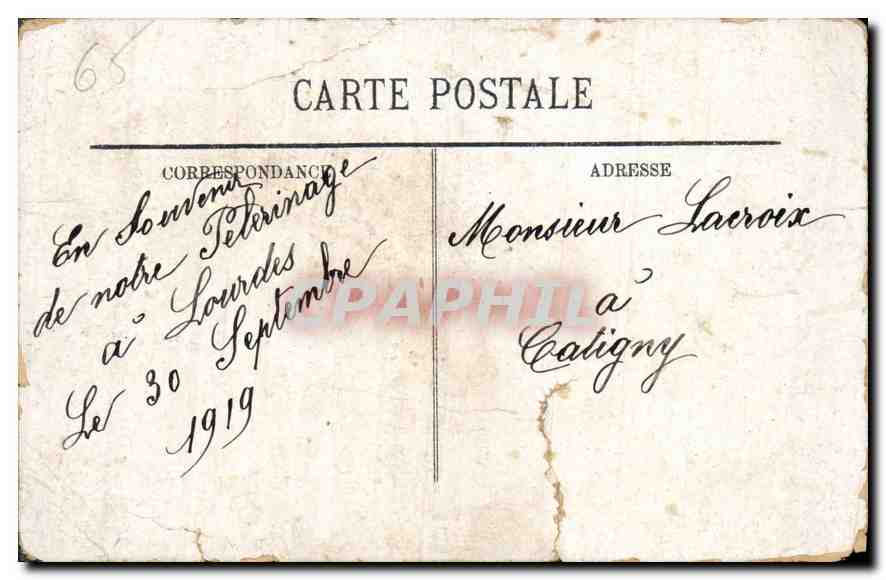 65
CARTE POSTALE
CORRESPONDANCE
En Souvenir
de notre Pèlerinage
à Lourdes
Le 30 Septembre
1919
ADRESSE
Monsieur Lacroix
à
Catigny
CPAPHIL